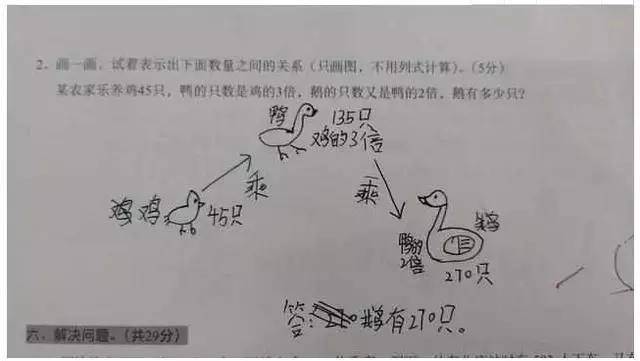 2. 画一画，试着表示出下面数量之间的关系（只画图，不用列式计算）。（5分）
某农家乐养鸡45只，鸭的只数是鸡的3倍，鹅的只数又是鸭的2倍，鹅有多少只？
鸭
135只
鸡的3倍
乘
乘
鸡鸡
45只
鸭的
2倍
鹅
270只
答：
鹅有270只。
六、解决问题。（共29分）